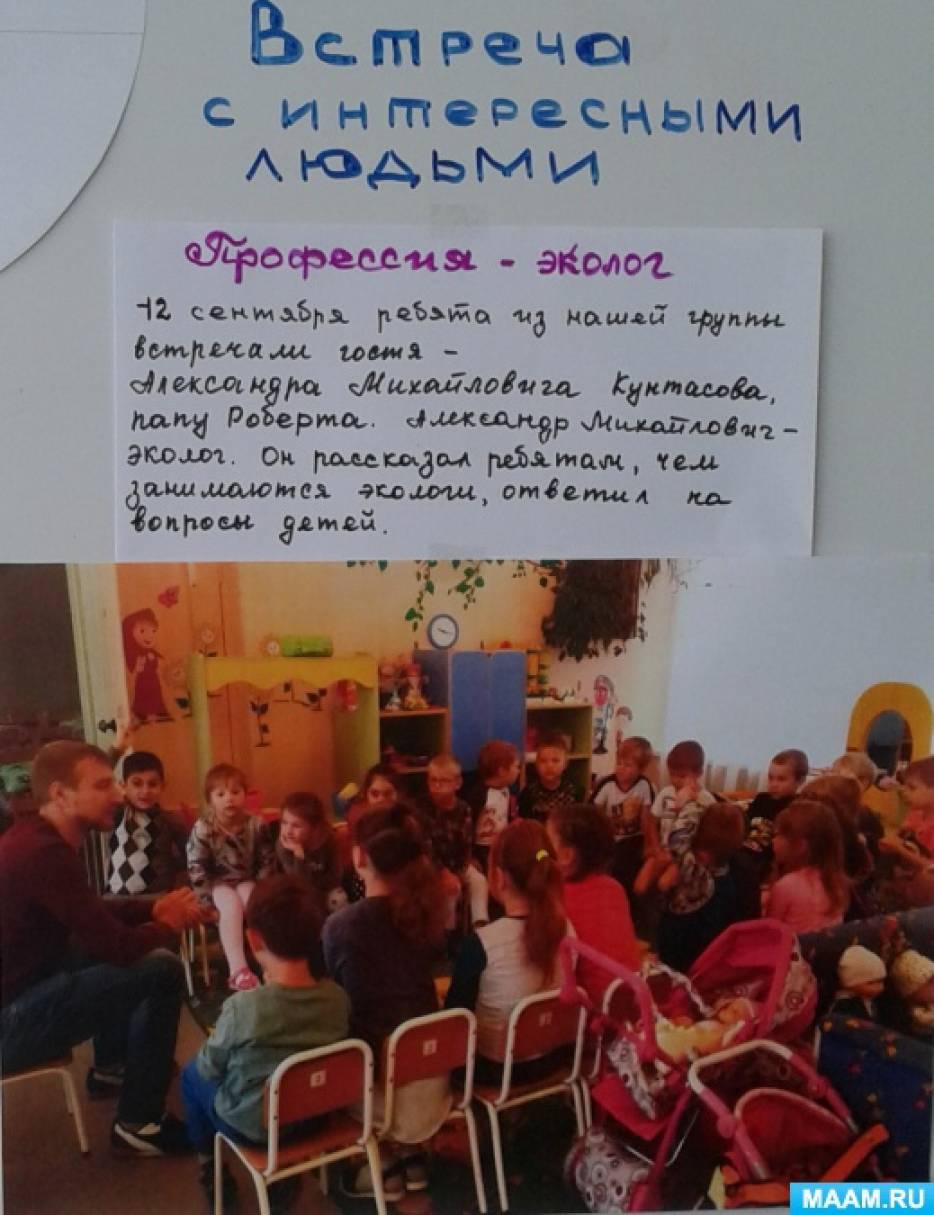 Встреча
с интересными
людьми
Профессия - эколог
12 сентября ребята из нашей группы
встречали гостя -
Александра Михайловича Кунтасова,
папу Роберта. Александр Михайлович -
эколог. Он рассказал ребятам, чем
занимаются экологи, ответил на
вопросы детей.
MAAM.RU